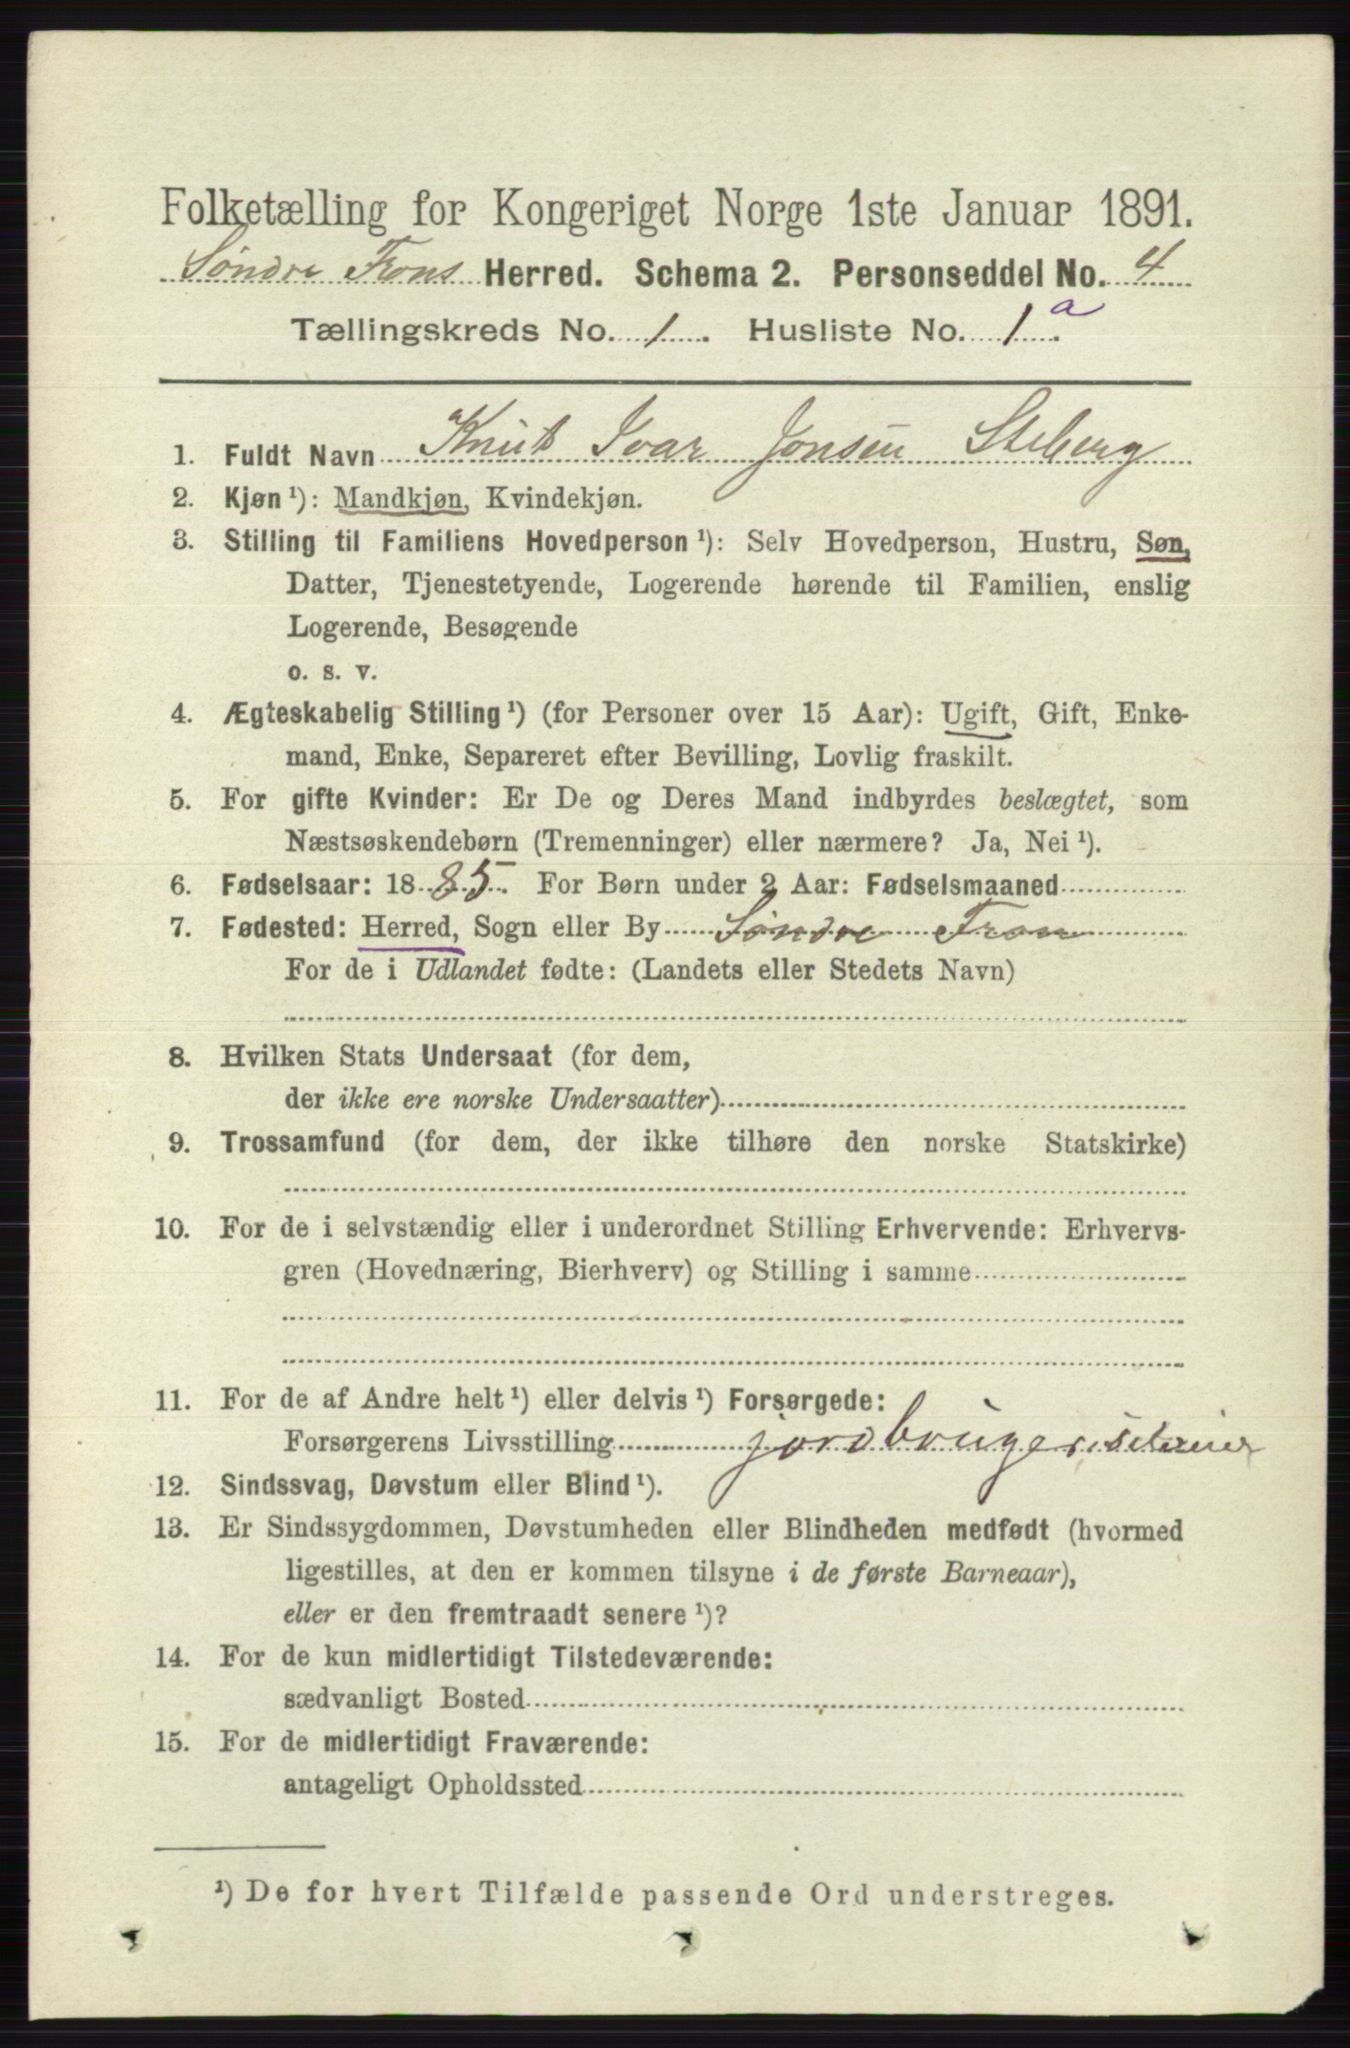 Folketælling for Kongeriget Norge 1ste Januar 1891.
Søndre Frons Herred. Schema 2. Personseddel No. 4
Tællingskreds No. 1. Husliste No. 1a.
1. Fuldt Navn Knut Ivar Jonsen Steberg
2. Kjøn ¹): Mandkjøn, Kvindekjøn.
3. Stilling til Familiens Hovedperson ¹): Selv Hovedperson, Hustru, Søn,
Datter, Tjenestetyende, Logerende hørende til Familien, enslig
Logerende, Besøgende
o. s. v.
4. Ægteskabelig Stilling ¹) (for Personer over 15 Aar): Ugift, Gift, Enke-
mand, Enke, Separeret efter Bevilling, Lovlig fraskilt.
5. For gifte Kvinder: Er De og Deres Mand indbyrdes beslægtet, som
Næstsøskendebørn (Tremenninger) eller nærmere? Ja, Nei ¹).
6. Fødselsaar: 1885. For Børn under 2 Aar: Fødselsmaaned
7. Fødested: Herred, Sogn eller By Søndre Fron
For de i Udlandet fødte: (Landets eller Stedets Navn)
8. Hvilken Stats Undersaat (for dem,
der ikke ere norske Undersaatter)
9. Trossamfund (for dem, der ikke tilhøre den norske Statskirke)
10. For de i selvstændig eller i underordnet Stilling Erhvervende: Erhvervs-
gren (Hovednæring, Bierhverv) og Stilling i samme
11. For de af Andre helt ¹) eller delvis ¹) Forsørgede:
Forsørgerens Livsstilling jordbruger
12. Sindssvag, Døvstum eller Blind ¹).
13. Er Sindssygdommen, Døvstumheden eller Blindheden medfødt (hvormed
ligestilles, at den er kommen tilsyne i de første Barneaar),
eller er den fremtraadt senere ¹)?
14. For de kun midlertidigt Tilstedeværende:
sædvanligt Bosted
15. For de midlertidigt Fraværende:
antageligt Opholdssted
¹) De for hvert Tilfælde passende Ord understreges.